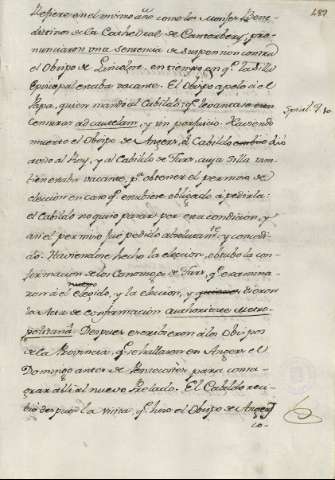 189
Refiere en el mismo año como los Monjes Bene-
dictinos de la Cathedral de Cantorberi, pro-
nunciaron una sentencia de suspension contra
el Obispo de Lincolne, en tiempo en qe. la Silla
Episcopal estaba vacante. El Obispo apeló á el
Papa, quien mandó al Cabildo qe. levantase
censuras ad cautelam, y sin perjuicio. Haviendo
muerto el Obispo de Angers, el Cabildo embio dió
aviso al Rey, y al Cabildo de Turs, cuya Silla tam-
bien estaba vacante, pa. obtener el permiso de
eleccion en caso qe. estubiese obligado á pedirla:
el Cabildo no quiso pasar por esa condicion, y
asi el permiso fue pedido absolutamte. y concedi-
do: Haviendose hecho la eleccion, obtubo la con-
formacion de los Canonigos de Turs, qe. examina-
ron á el nuevo elegido, y la eleccion, y dieron
las Actas de Confirmacion Authoritate Metro-
politana. Despues escribieron á los Obispos
de la Provincia, qe. se hallaron en Angers el
Domingo antes de Pentecostes para consa-
grar alli al nuevo Prelado. El Cabildo reci-
bió despues la visita, qe. hizo el Obispo de Angers
co-